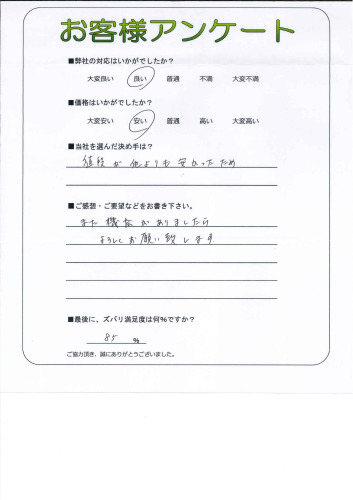 お客様アンケート
■弊社の対応はいかがでしたか？
大変良い 良い 普通 不満 大変不満
■価格はいかがでしたか？
大変安い 安い 普通 高い 大変高い
■当社を選んだ決め手は？
値段が他よりも安かったため
■ご感想・ご要望などをお書き下さい。
また機会がありましたら
よろしくお願い致します
■最後に、ズバリ満足度は何％ですか？
85 %
ご協力頂き、誠にありがとうございました。